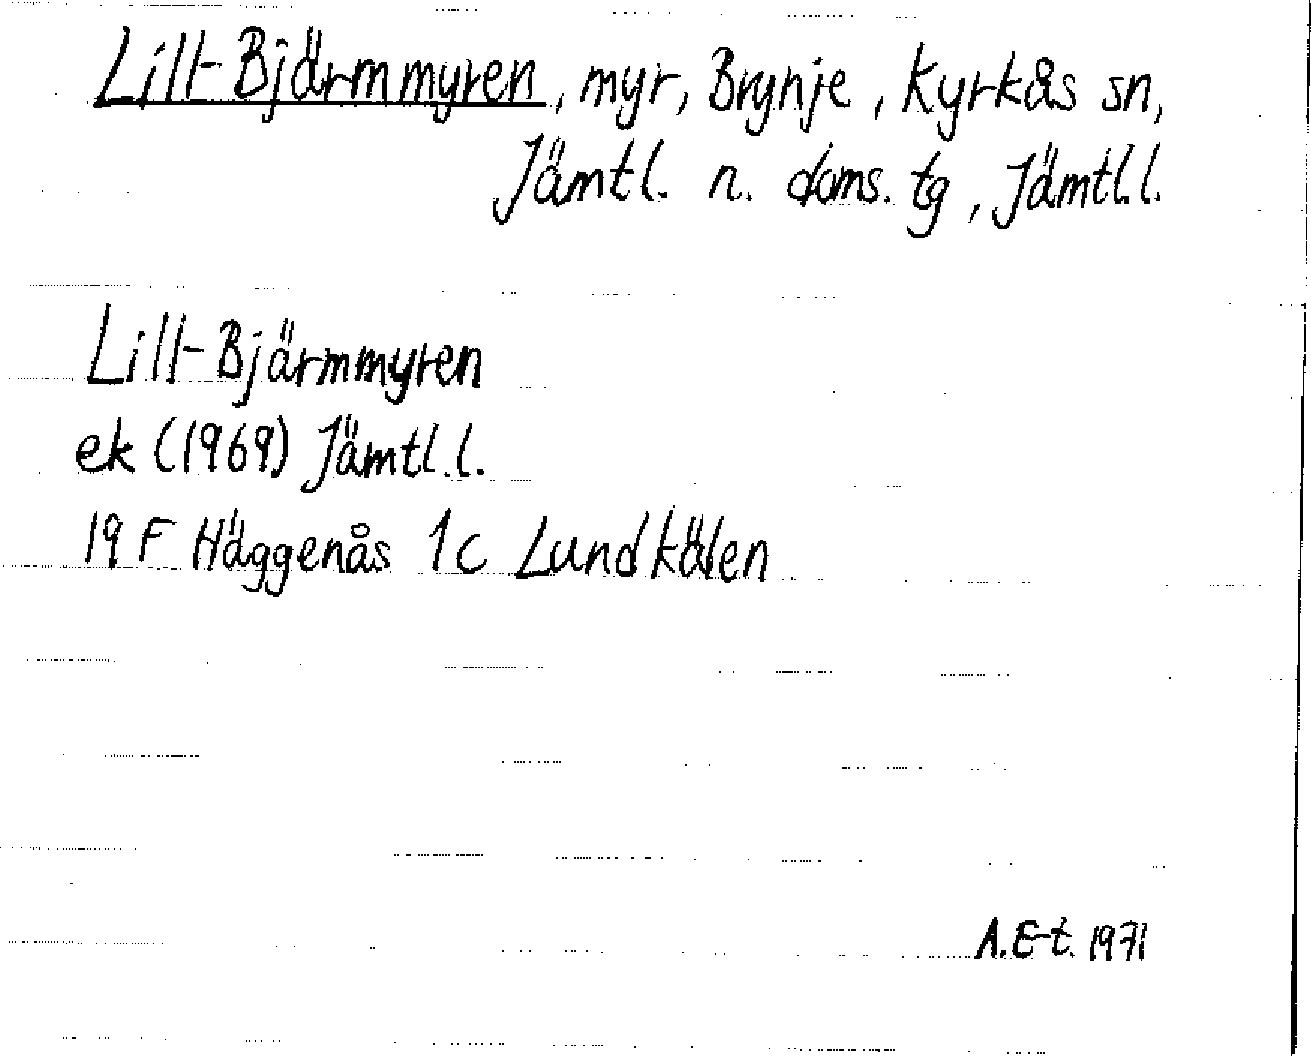 Lill-Bjärmmyren, myr, Brynje, Kyrkås sn,
Jämtl. n. doms. tg, Jämtl.l.
Lill-Bjärmmyren
ek (1969) Jämtl.l.
19 F Häggenås 1c Lundkälen
A.E-t. 1971